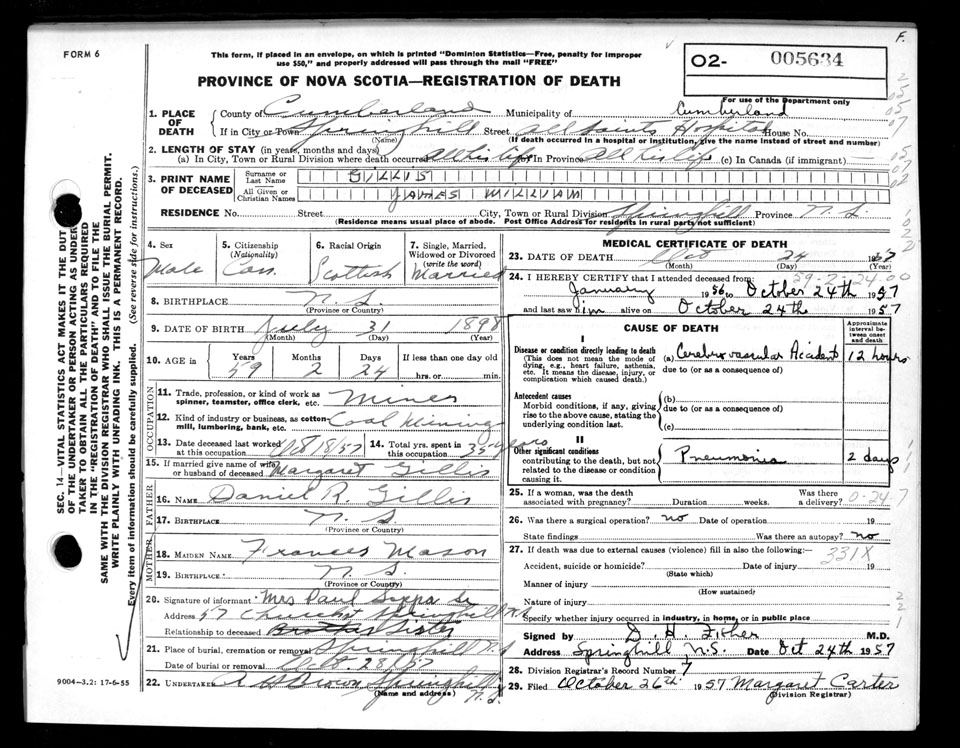 FORM 6
This form, if placed in an envelope, on which is printed "Dominion Statistics—Free, penalty for improper
use $50," and properly addressed will pass through the mail "FREE"
PROVINCE OF NOVA SCOTIA—REGISTRATION OF DEATH
F.
02- 005634
For use of the Department only
1. PLACE OF DEATH
County of Cumberland Municipality of Cumberland
If in City or Town Springhill Street All Saints Hospital House No.
(Name) (If death occurred in a hospital or institution, give the name instead of street and number)
2. LENGTH OF STAY (in years, months and days)
(a) In City, Town or Rural Division where death occurred All his life (b) In Province All his life (c) In Canada (if immigrant)
3. PRINT NAME OF DECEASED
Surname or Last Name GILLIS
All Given or Christian Names JAMES WILLIAM
RESIDENCE No. Street City, Town or Rural Division Springhill Province N.S.
(Residence means usual place of abode. Post Office Address for residents in rural parts not sufficient)
4. Sex Male
5. Citizenship (Nationality) Can.
6. Racial Origin Scottish
7. Single, Married, Widowed or Divorced (write the word) Married
8. BIRTHPLACE N.S.
(Province or Country)
9. DATE OF BIRTH July 31 1898
(Month) (Day) (Year)
10. AGE in Years Months Days If less than one day old
59 2 24 hrs. or min.
OCCUPATION
11. Trade, profession, or kind of work as spinner, teamster, office clerk, etc. Miner
12. Kind of industry or business, as cotton-mill, lumbering, bank, etc. Coal Mining
13. Date deceased last worked at this occupation 18/57
14. Total yrs. spent in this occupation 35 years
15. If married give name of wife or husband of deceased Margaret Gillis
FATHER
16. NAME Daniel R. Gillis
17. BIRTHPLACE N.S.
(Province or Country)
MOTHER
18. MAIDEN NAME Frances Mason
19. BIRTHPLACE N.S.
(Province or Country)
20. Signature of informant Mrs Paul Sr
Address 57 Church St Springhill N.S.
Relationship to deceased Sister
21. Place of burial, cremation or removal Springhill N.S.
Date of burial or removal Oct 28/57
22. UNDERTAKER A H Brown Springhill N.S.
(Name and address)
MEDICAL CERTIFICATE OF DEATH
23. DATE OF DEATH Oct 24 1957
(Month) (Day) (Year)
59-2-24-00
24. I HEREBY CERTIFY that I attended deceased from:
January 1956 to October 24th 1957
and last saw him alive on October 24th 1957
CAUSE OF DEATH
Approximate interval between onset and death
I
Disease or condition directly leading to death (a) Cerebrovascular Accident 12 hours
(This does not mean the mode of dying, e.g., heart failure, asthenia, etc. It means the disease, injury, or complication which caused death.)
due to (or as a consequence of)
Antecedent causes
Morbid conditions, if any, giving rise to the above cause, stating the underlying condition last.
(b)
due to (or as a consequence of)
(c)
II
Other significant conditions contributing to the death, but not related to the disease or condition causing it.
Pneumonia 2 days
25. If a woman, was the death associated with pregnancy? Duration weeks. Was there a delivery?
0-24-7
26. Was there a surgical operation? no Date of operation 19
State findings Was there an autopsy? no
27. If death was due to external causes (violence) fill in also the following:— 331X
Accident, suicide or homicide? Date of injury 19
(State which)
Manner of injury
(How sustained)
Nature of injury
Specify whether injury occurred in industry, in home, or in public place
Signed by D. H. Fisher M.D.
Address Springhill N.S. Date Oct 24th 1957
28. Division Registrar's Record Number 7
29. Filed October 26th 1957 Margaret Carter
(Division Registrar)
9004-3.2: 17-6-55
SEC. 14—VITAL STATISTICS ACT MAKES IT THE DUTY
OF THE UNDERTAKER OR PERSON ACTING AS UNDERTAKER
TO OBTAIN ALL THE PARTICULARS REQUIRED
IN THE "REGISTRATION OF DEATH" AND TO FILE THE
SAME WITH THE DIVISION REGISTRAR WHO SHALL ISSUE THE BURIAL PERMIT.
WRITE PLAINLY WITH UNFADING INK. THIS IS A PERMANENT RECORD.
Every item of information should be carefully supplied. (See reverse side for instructions.)